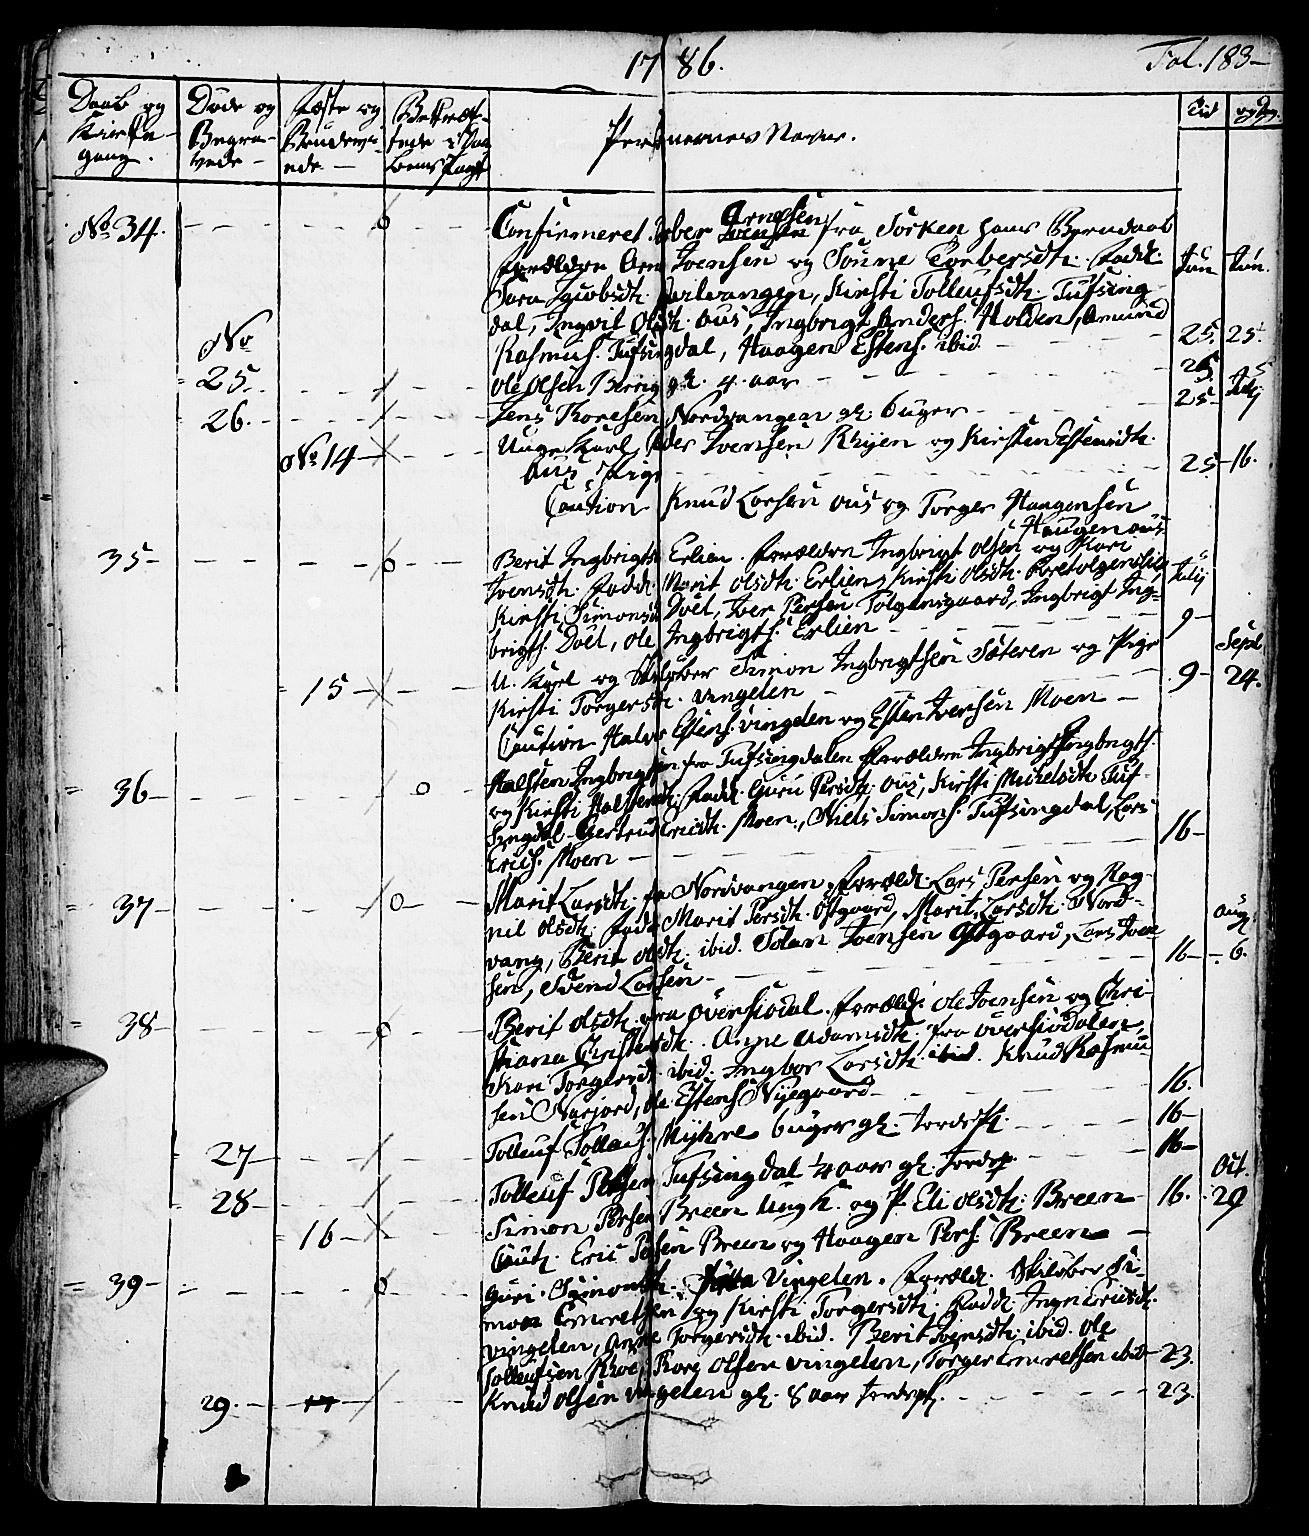 1786.
Fol. 183
Daab og Kirke gang.
Døde og Begra vede
Fæste og Brudevi ede
Personernes Navne.
Tid
No 34. Confirmeret Iver Arnesen fra Sørken hans Berndaab
Forældre Arn Ivensen og Sønne Torbersdtr. Fadd.
Jun Jun.
Sara Jacobsdtr. Kirsti Tolleufsdtr. Tufsing-
dal, Ingvil Olsdtr. Ous, Ingbrigt Anders. Holden, Amund
No
Rasmus. Tufsingdal, Haagen Estens. ibid 25. 25
25. Ole Olsen Berrig gl. 4 aar 25. July
26. Jens Toresen Nordvangen gl. 6 uger 25 5
No 14 Unge Karl Peder Ivensen Rhyen og Kirsten Estensdtr.
Ous Pige 25 16.
Caution Knud Larsen Ous og Torger Haagensen
Haugen Ous
35 Berit Ingbrigtsd Erlien. Forældre Ingbrigt Olsen og Kari
Ivensdtr. Fadd. Marit Olsdtr. Erlien, Kirsti Olsdtr. July
Kirsti Simonsd Døel, Iver Persen Tolgensgaard, Ingbrigt Ing-
brigts. Døel, Ole Ingbrigts. Erlien 9 Sept
15 U. Karl og Skiløber Simon Ingbrigtsen Sæteren og Pige 9 24.
Kirsti Torgersdtr. Vingelen
Caution Halvor Estens. Vingelen og Esten Iversen Moen
36 Halsten Ingbrigtsen fra Tufsingdalen Forældre Ingbrigt Ingbrigts.
og Kirsti Halstensdtr. Fadd. Guru Persdtr. Ous, Kirsti Mikelsdtr. Tuf-
singdal Gertrud Ericsdtr. Moen, Niels Simons. Tufsingdal, Lars
Erics. Moen 16
37 Marit Larsdtr. fra Nordvangen. Foræld. Lars Persen og Rag-
nil Olsdtr. Fadd Marit Persdtr. Østgaard, Marit Larsdtr. Nord- Aug
vang, Berit Olsdtr. ibid. Joen Ivensen Østgaard, Lars Iven- 16 6.
sen, Svend Larsen
38 Berit Olsdtr. fra Øversiødal. Foræld. Ole Ivensen og Chri-
stiana Christensdtr. Anne Adamsdtr. fra Øversiødalen,
Kari Torgersd. ibid. Ingbor Larsdtr. ibid. Knud Rasmu-
sen Narjord, Ole Estens Nyegaard 16.
27 Tolleuf Tollaus. Nyhre 6 uger gl. Jordsk. 16
28 Tolleuf Persen Tufsingdal ¼ aar gl. Jordsp. 16 Oct.
16 Simon Persen Breen Ung K. og P. Eli Olsdtr. Breen 16. 29
Caut. Eric Persen Breen og Haagen Pers. Breen
39 Guri Simonsdtr. Vingelen. Foræld. Skiløber Si-
mon Emretsen og Kirsti Torgersdtr. Fadd. Ingri Ericsdtr.
Vingelen, Anne Torgersdtr. ibid. Berit Ivensdtr. ibid. Ole
Tolleufsen Moe, Tore Olsen Vingelen, Torger Emretsen ibid 23.
29. 17 Knud Olsen Vingelen gl. 8 aar Jordsp. 23.